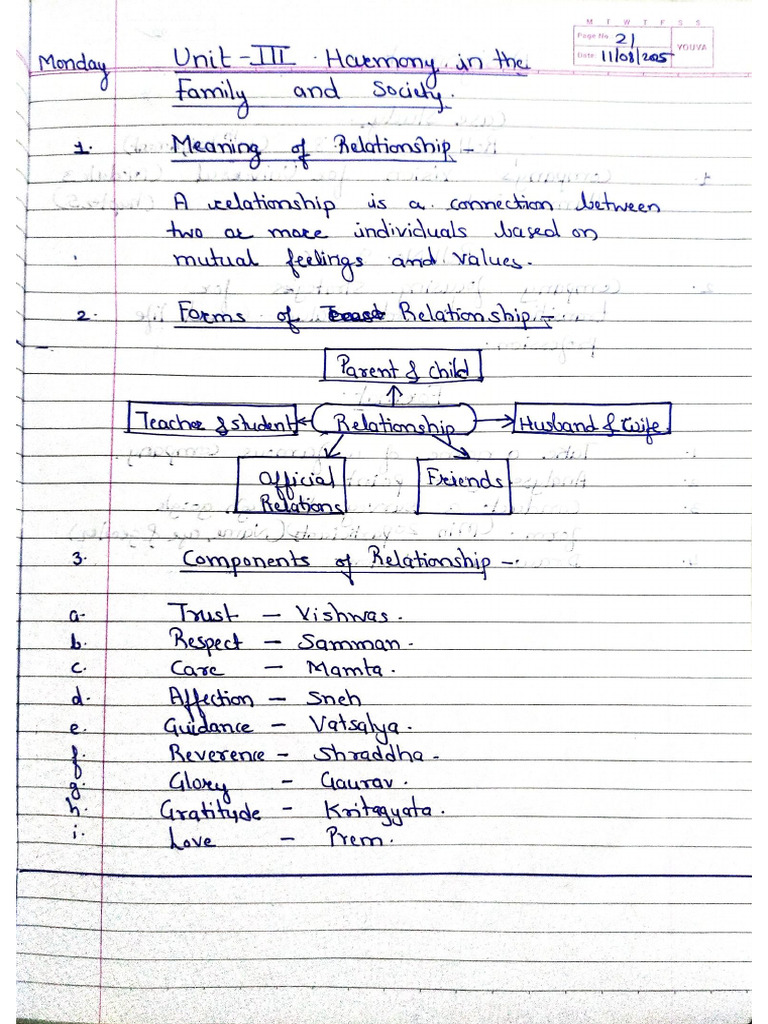 M T W T F S S
Page No. 21
Date: 11/08/2025
YOUVA
Monday
Unit-III Harmony in the
Family and Society.
1. Meaning of Relationship -
A relationship is a connection between
two or more individuals based on
mutual feelings and values.
2. Forms of Relationship -
Parent & child
Teacher & student
Relationship
Husband & wife
Official
Relations
Friends
3. Components of Relationship -
a. Trust - Vishwas.
b. Respect - Samman.
c. Care - Mamta.
d. Affection - Sneh
e. Guidance - Vatsalya.
f. Reverence - Shraddha.
g. Glory - Gaurav.
h. Gratitude - Kritagyata.
i. Love - Prem.